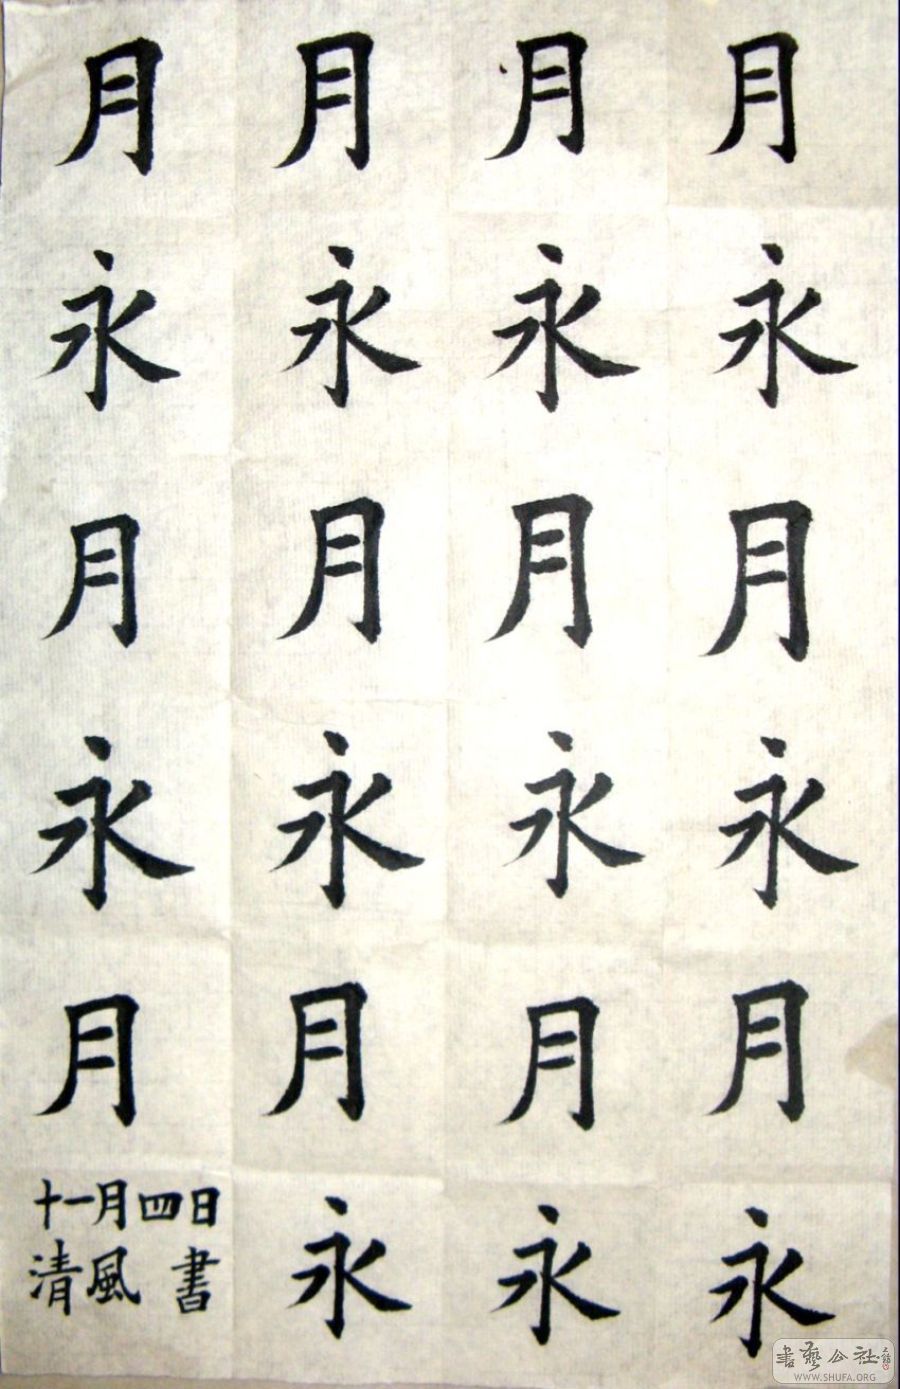 月 月 月 月
永 永 永 永
月 月 月 月
永 永 永 永
月 月 月 月
十一月四日 永 永 永
清風 書
書藝公社
WWW.SHUFA.ORG